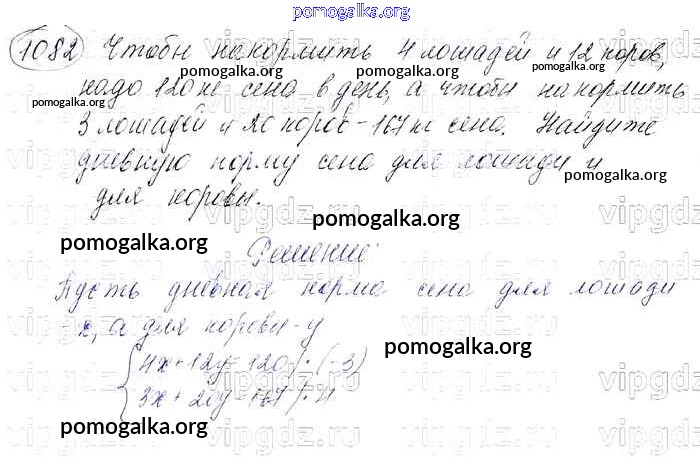 pomogalka.org
1082 Чтобы накормить 4 лошадей и 12 коров,
pomogalka.org pomogalka.org
надо 120 кг сена в день, а чтобы накормить
pomogalka.org pomogalka.org
3 лошадей и 20 коров - 167 кг сена. Найдите
дневную норму сена для лошади и
pomogalka.org
для коровы.
pomogalka.org
pomogalka.org
Решение:
Пусть дневная норма сена для лошади
- x, а для коровы - y
{4x + 12y = 120 | · (-3)
pomogalka.org
3x + 20y = 167 | · 4
pomogalka.org
vipgdz.ru